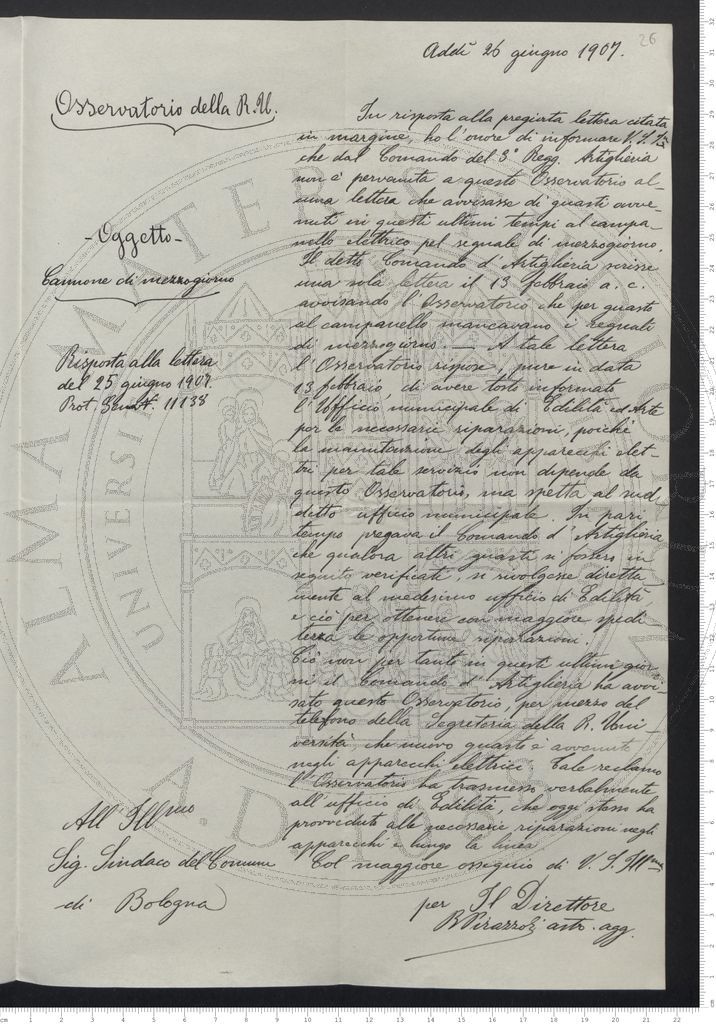 26
Addì 26 giugno 1907.
Osservatorio della R. U.
- Oggetto -
Cannone di mezzogiorno
Risposta alla lettera
del 25 giugno 1907.
Prot. Gen. N. 11138
In risposta alla pregiata lettera citata
in margine, ho l'onore di informare V. S. Ill.
che dal Comando del 3° Regg. Artiglieria
non è pervenuta a questo Osservatorio al-
cuna lettera che avvisasse di guasti avve-
nuti in questi ultimi tempi al campa-
nello elettrico pel segnale di mezzogiorno.
Il detto Comando d'Artiglieria scrisse
una sola lettera il 13 febbraio a. c.
avvisando l'Osservatorio che per guasto
al campanello mancavano i segnali
di mezzogiorno. — A tale lettera
l'Osservatorio rispose, pure in data
13 febbraio, di avere tosto informato
l'Ufficio municipale di Edilità ed Arte
per le necessarie riparazioni, poichè
la manutenzione degli apparecchi elet-
trici per tale servizio non dipende da
questo Osservatorio, ma spetta al sud-
detto ufficio municipale. In pari
tempo pregava il Comando d'Artiglieria
che qualora altri guasti si fossero in
seguito verificati, si rivolgesse diretta
mente al medesimo ufficio di Edilità
e ciò per ottenere con maggiore spedi
tezza le opportune riparazioni.
Ciò non per tanto in questi ultimi gior-
ni il Comando d'Artiglieria ha avvi-
sato questo Osservatorio, per mezzo del
telefono della Segreteria della R. Uni-
versità, che nuovo guasto è avvenuto
negli apparecchi elettrici. Tale reclamo
l'Osservatorio ha trasmesso verbalmente
all'ufficio di Edilità, che oggi stesso ha
provveduto alle necessarie riparazioni negli
apparecchi e lungo la linea.
Col maggiore ossequio di V. S. Ill.ma
All'Ill.mo
Sig. Sindaco del Comune
di Bologna
per Il Direttore
B Pirazzoli astr. agg.
ALMA MATER
UNIVERSI
A.D. 1088